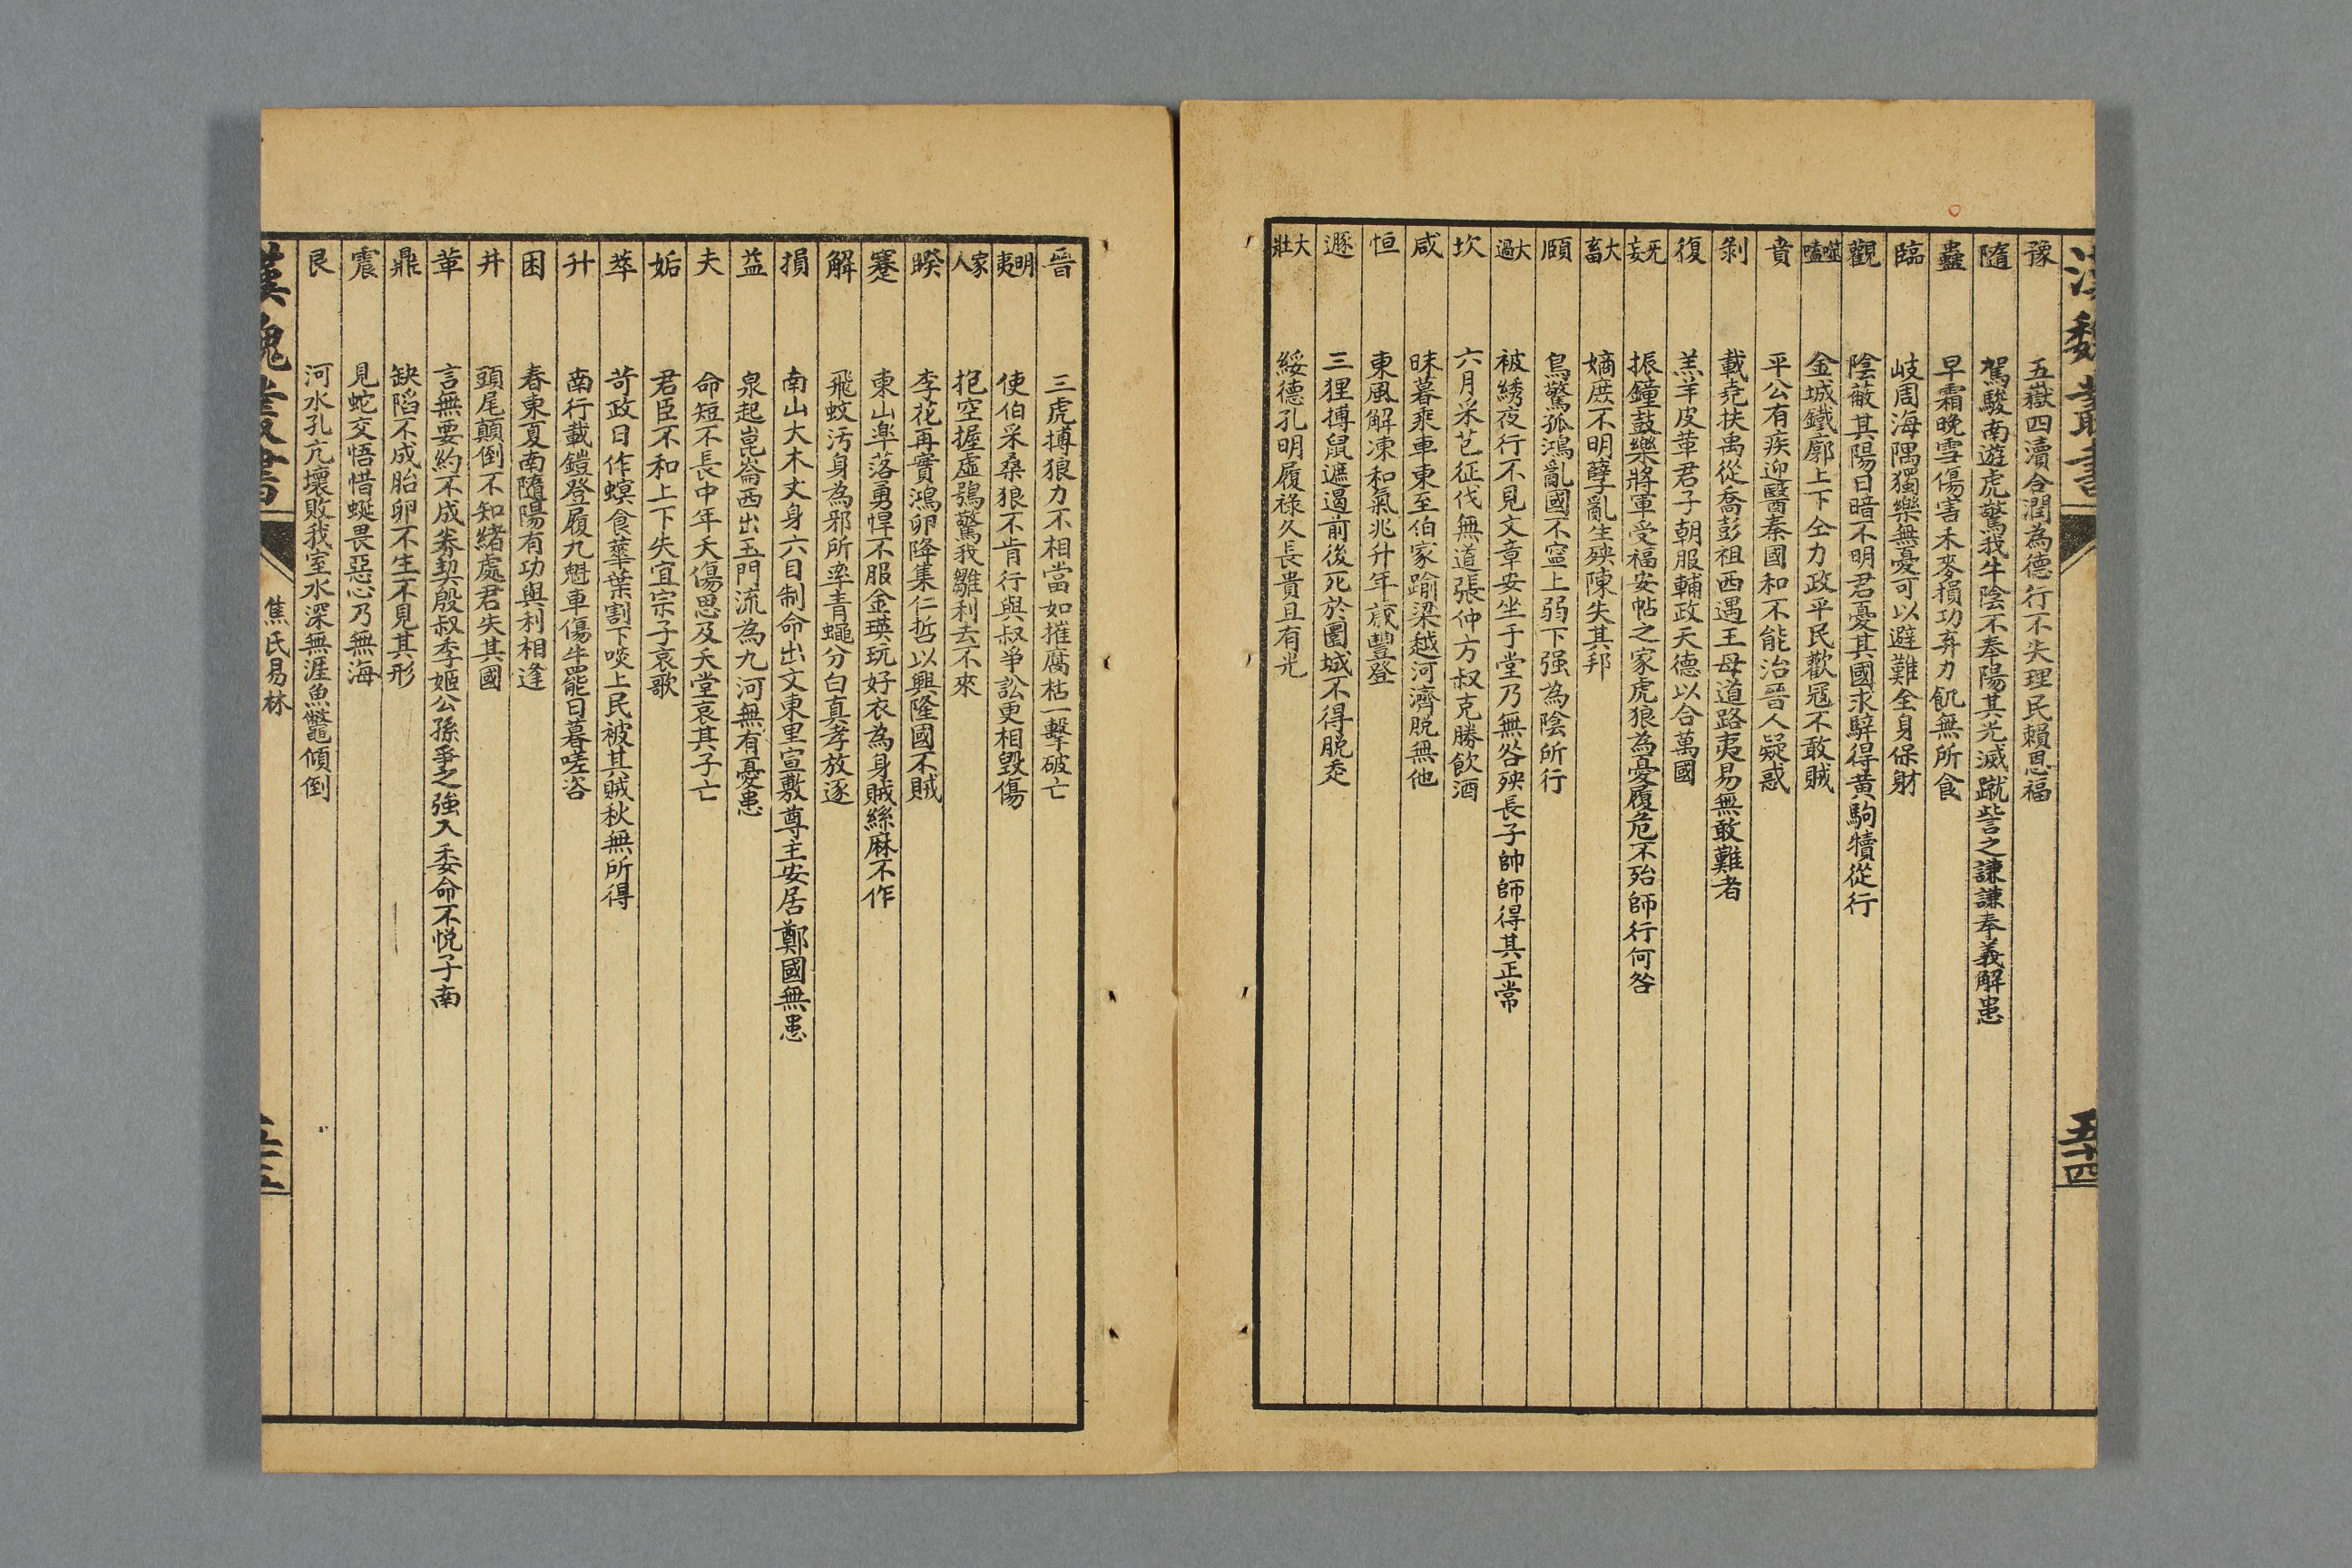 漢魏叢書
五十四
豫 五嶽四瀆合潤為德行不失理民賴恩福
隨 駕駿南遊虎驚我牛陰不奉陽其光滅蹴訾之謙謙奉義解患
蠱 早霜晚雪傷害禾麥損功弃力飢無所食
臨 岐周海隅獨樂無憂可以避難全身保躬
觀 陰蔽其陽日暗不明君憂其國求騂得黃駒犢從行
噬嗑 金城鐵廓上下仝力政平民歡冦不敢賊
賁 平公有疾迎醫秦國和不能治晉人疑惑
剝 載堯扶禹從喬彭祖西遇王母道路夷易無敢難者
復 羔羊皮革君子朝服輔政天德以合萬國
无妄 振鐘鼓樂將軍受福安帖之家虎狼為憂履危不殆師行何咎
大畜 嫡庶不明孽亂生殃陳失其邦
頤 鳥驚孤鴻亂國不寍上弱下强為陰所行
大過 被綉夜行不見文章安坐于堂乃無咎殃長子帥師得其正常
坎 六月采芑征伐無道張仲方叔克勝飲酒
咸 昧暮乘車東至伯家踰梁越河濟脱無他
恒 東風解凍和氣兆升年歲豐登
遯 三狸搏鼠遮遏前後死於圜域不得脱赱
大壯 綏德孔明履祿久長貴且有光
晉 三虎搏狼力不相當如摧腐枯一擊破亡
明夷 使伯采桑狼不肯行與叔爭訟更相毀傷
家人 抱空握虛鴞驚我雛利去不來
睽 李花再實鴻卵降集仁哲以興隆國不賊
蹇 東山辜落勇悍不服金瑛玩好衣為身賊絲麻不作
解 飛蚊汚身為邪所牽青蠅分白真孝放逐
損 南山大木文身六目制命出文東里宣敷尊主安居鄭國無患
益 泉起崑崙西出玉門流為九河無有憂患
夬 命短不長中年夭傷思及夭堂哀其子亡
姤 君臣不和上下失宜宗子哀歌
萃 苛政日作螟食華葉割下啖上民被其賊秋無所得
升 南行載鎧登履九魁車傷牛罷日暮嗟咨
困 春東夏南隨陽有功與利相逢
井 頭尾顛倒不知緒處君失其國
革 言無要約不成券契殷叔季姬公孫爭之強入委命不悅子南
鼎 缺䧟不成胎卵不生不見其形
震 見蛇交悟惜蜒畏惡心乃無海
艮 河水孔亢壞敗我室水深無涯魚鼈傾倒
漢魏叢書
焦氏易林